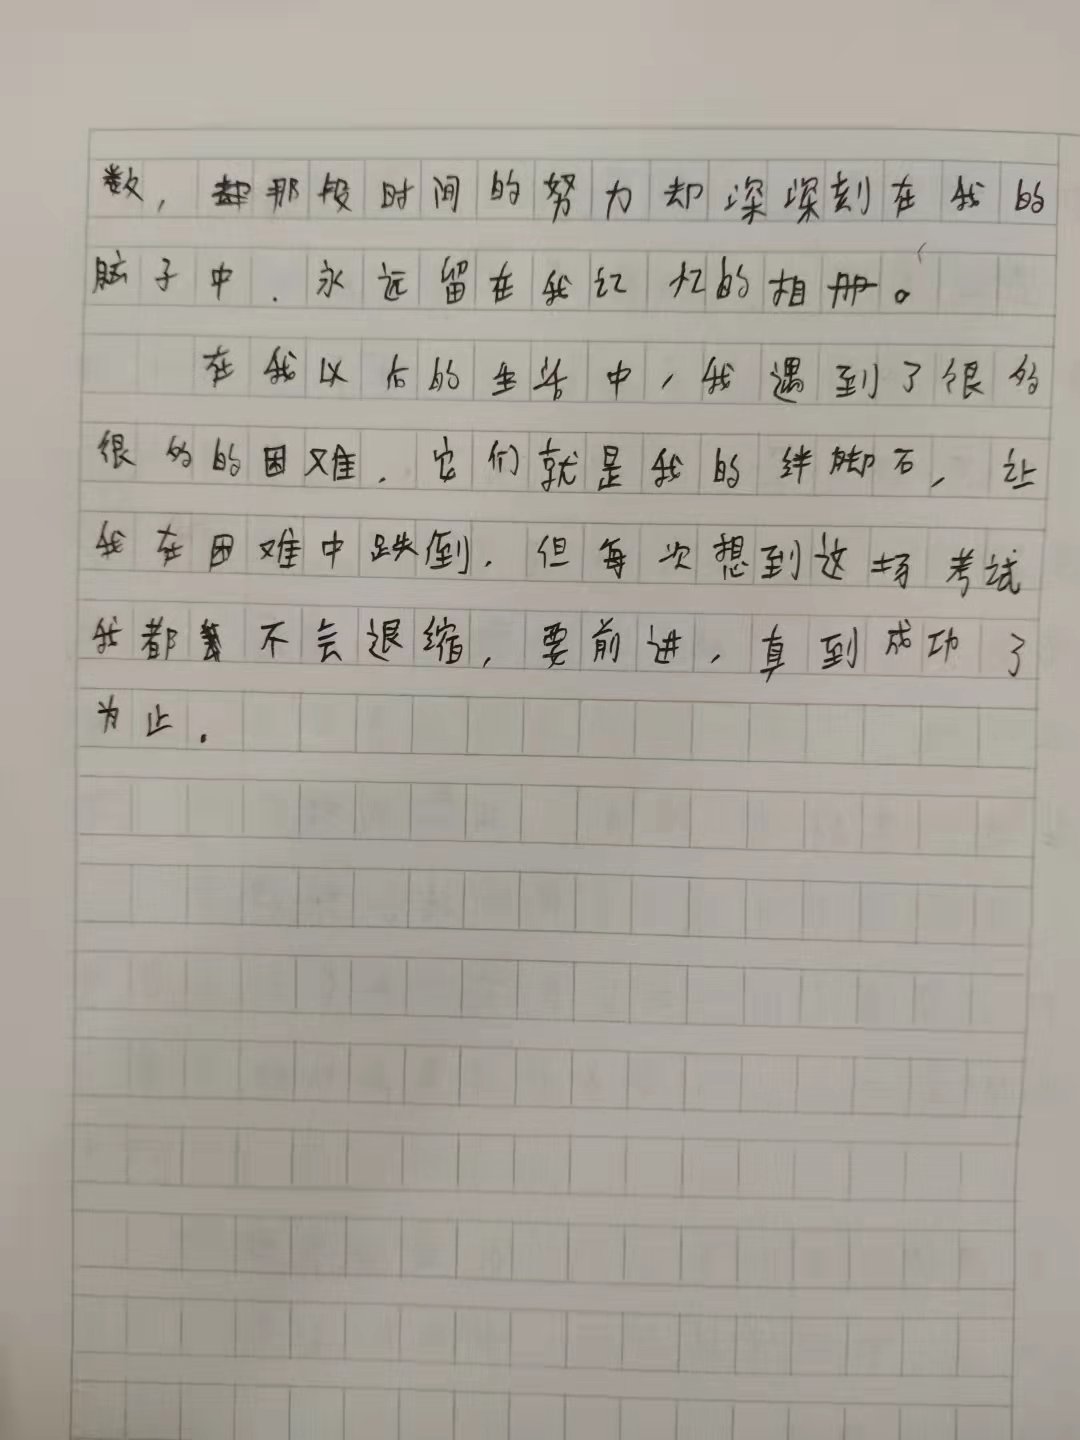 数，那段时间的努力却深深刻在我的
脑子中.永远留在我记忆的相册。
在我以后的生活中，我遇到了很多
很多的困难.它们就是我的绊脚石，让
我在困难中跌倒.但每次想到这场考试
我都不会退缩，要前进，真到成功了
为止.